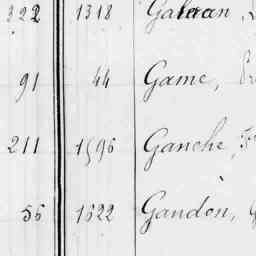 322 1318 Galaan,
91 44 Game,
211 1596 Ganche,
56 1622 Gandon,